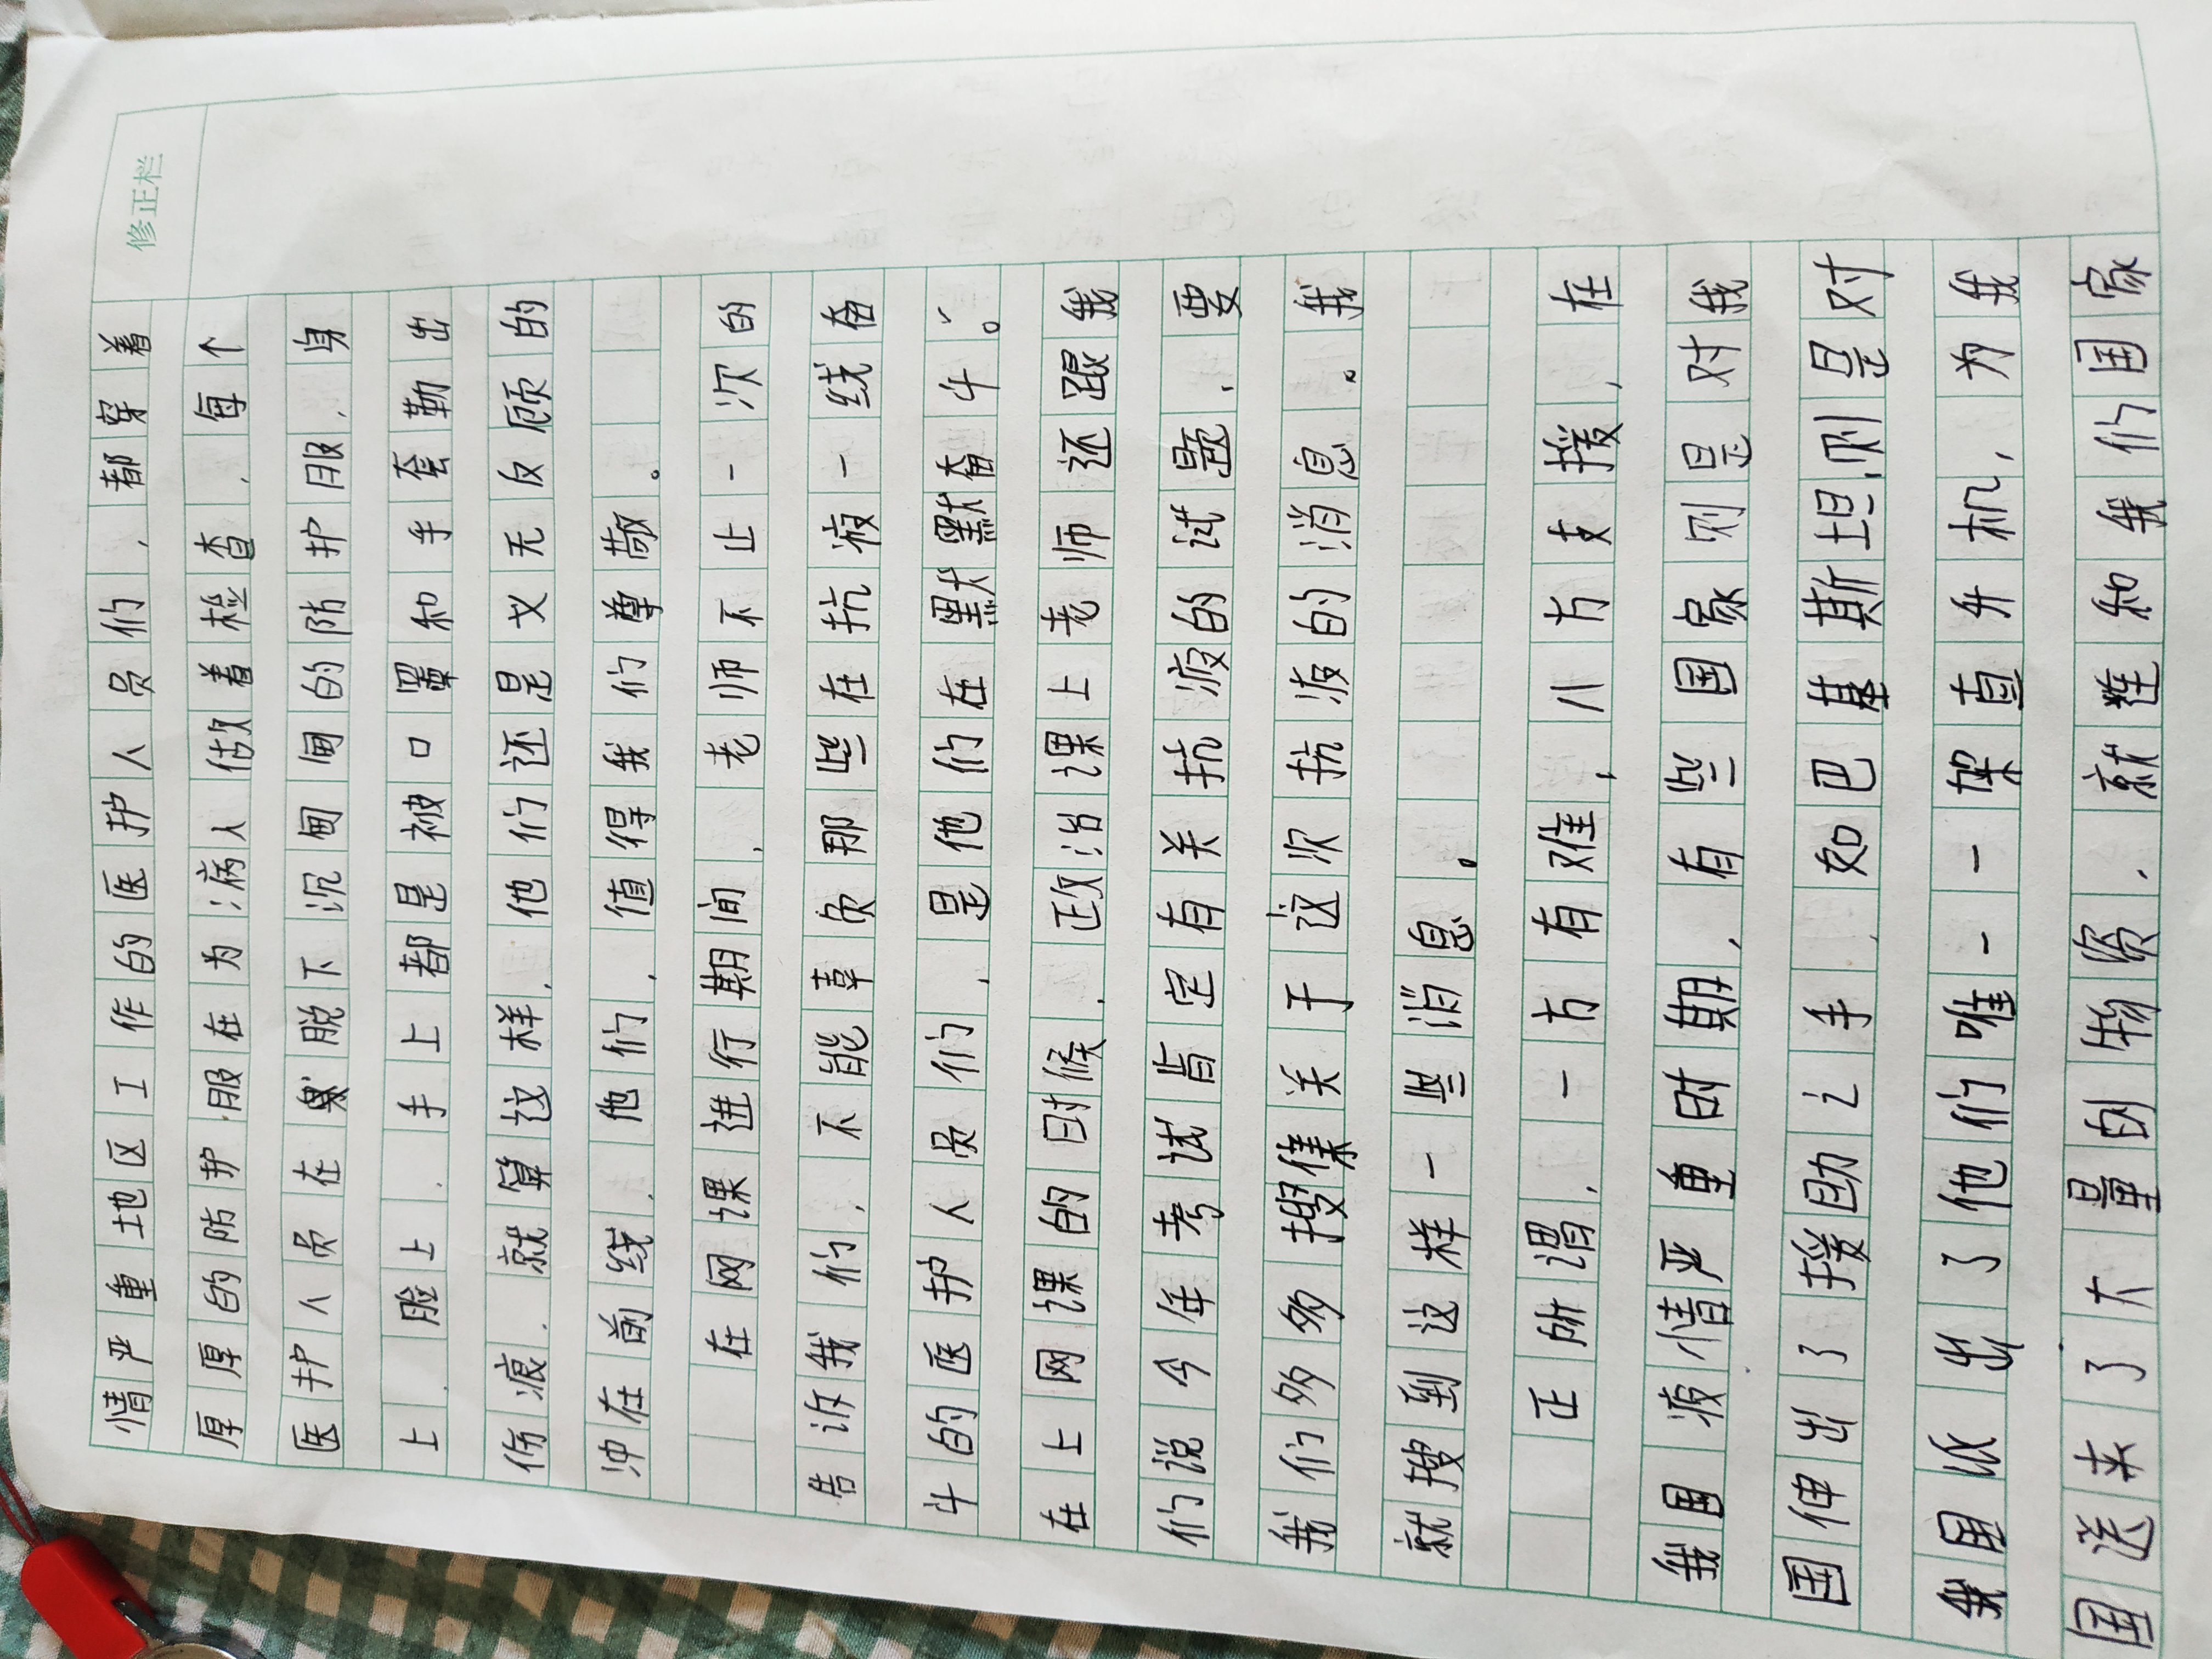 修正栏
情严重地区工作的医护人员们,都穿着
厚厚的防护服在为病人做着检查,每个
医护人员在脱下沉甸甸的防护服,身
上,脸上,手上都是被口罩和手套勒出
伤痕,就算这样,他们还是义无反顾的
冲在前线,他们,值得我们尊敬。
在网课进行期间,老师不止一次的
告诉我们,不能辜负那些在抗液一线奋
斗的医护人员们,是他们在默默奋斗。
在上网课的时候,政治课上老师还跟我
们说今年考试肯定有关抗疫的试题,要
我们多多搜集关于这次抗疫的消息。我
就搜到这样一些消息。
正所谓,一方有难,八方支援,在
我国疫情严重时期,有些国家则是对我
国伸出了援助之手,如巴基斯坦,则是对
我国派出了他们唯一一架直升机,为我
国送来了大量的物资,就连和我们国家